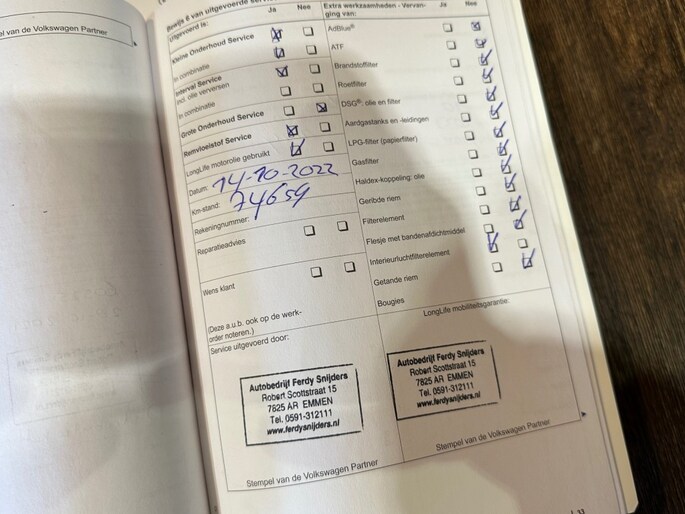 pel van de Volkswagen Partner
Bewijs 6 van uitgevoerde
uitgevoerd is:
Ja
Nee
Kleine Onderhoud Service
In combinatie
Interval Service
incl. olie verversen
In combinatie
Grote Onderhoud Service
Remvloeistof Service
LongLife motorolie gebruikt
Datum: 14-10-2022
Km-stand: 74659
Rekeningnummer:
Reparatieadvies
Wens klant
(Deze a.u.b. ook op de werk-
order noteren.)
Service uitgevoerd door:
Autobedrijf Ferdy Snijders
Robert Scottstraat 15
7825 AR EMMEN
Tel. 0591-312111
www.ferdysnijders.nl
Stempel van de Volkswagen Partner
Extra werkzaamheden - Vervan-
ging van:
Ja
Nee
AdBlue®
ATF
Brandstoffilter
Roetfilter
DSG®: olie en filter
Aardgastanks en -leidingen
LPG-filter (papierfilter)
Gasfilter
Haldex-koppeling: olie
Geribde riem
Filterelement
Flesje met bandenafdichtmiddel
Interieurluchtfilterelement
Getande riem
Bougies
LongLife mobiliteitsgarantie:
Autobedrijf Ferdy Snijders
Robert Scottstraat 15
7825 AR EMMEN
Tel. 0591-312111
www.ferdysnijders.nl
Stempel van de Volkswagen Partner